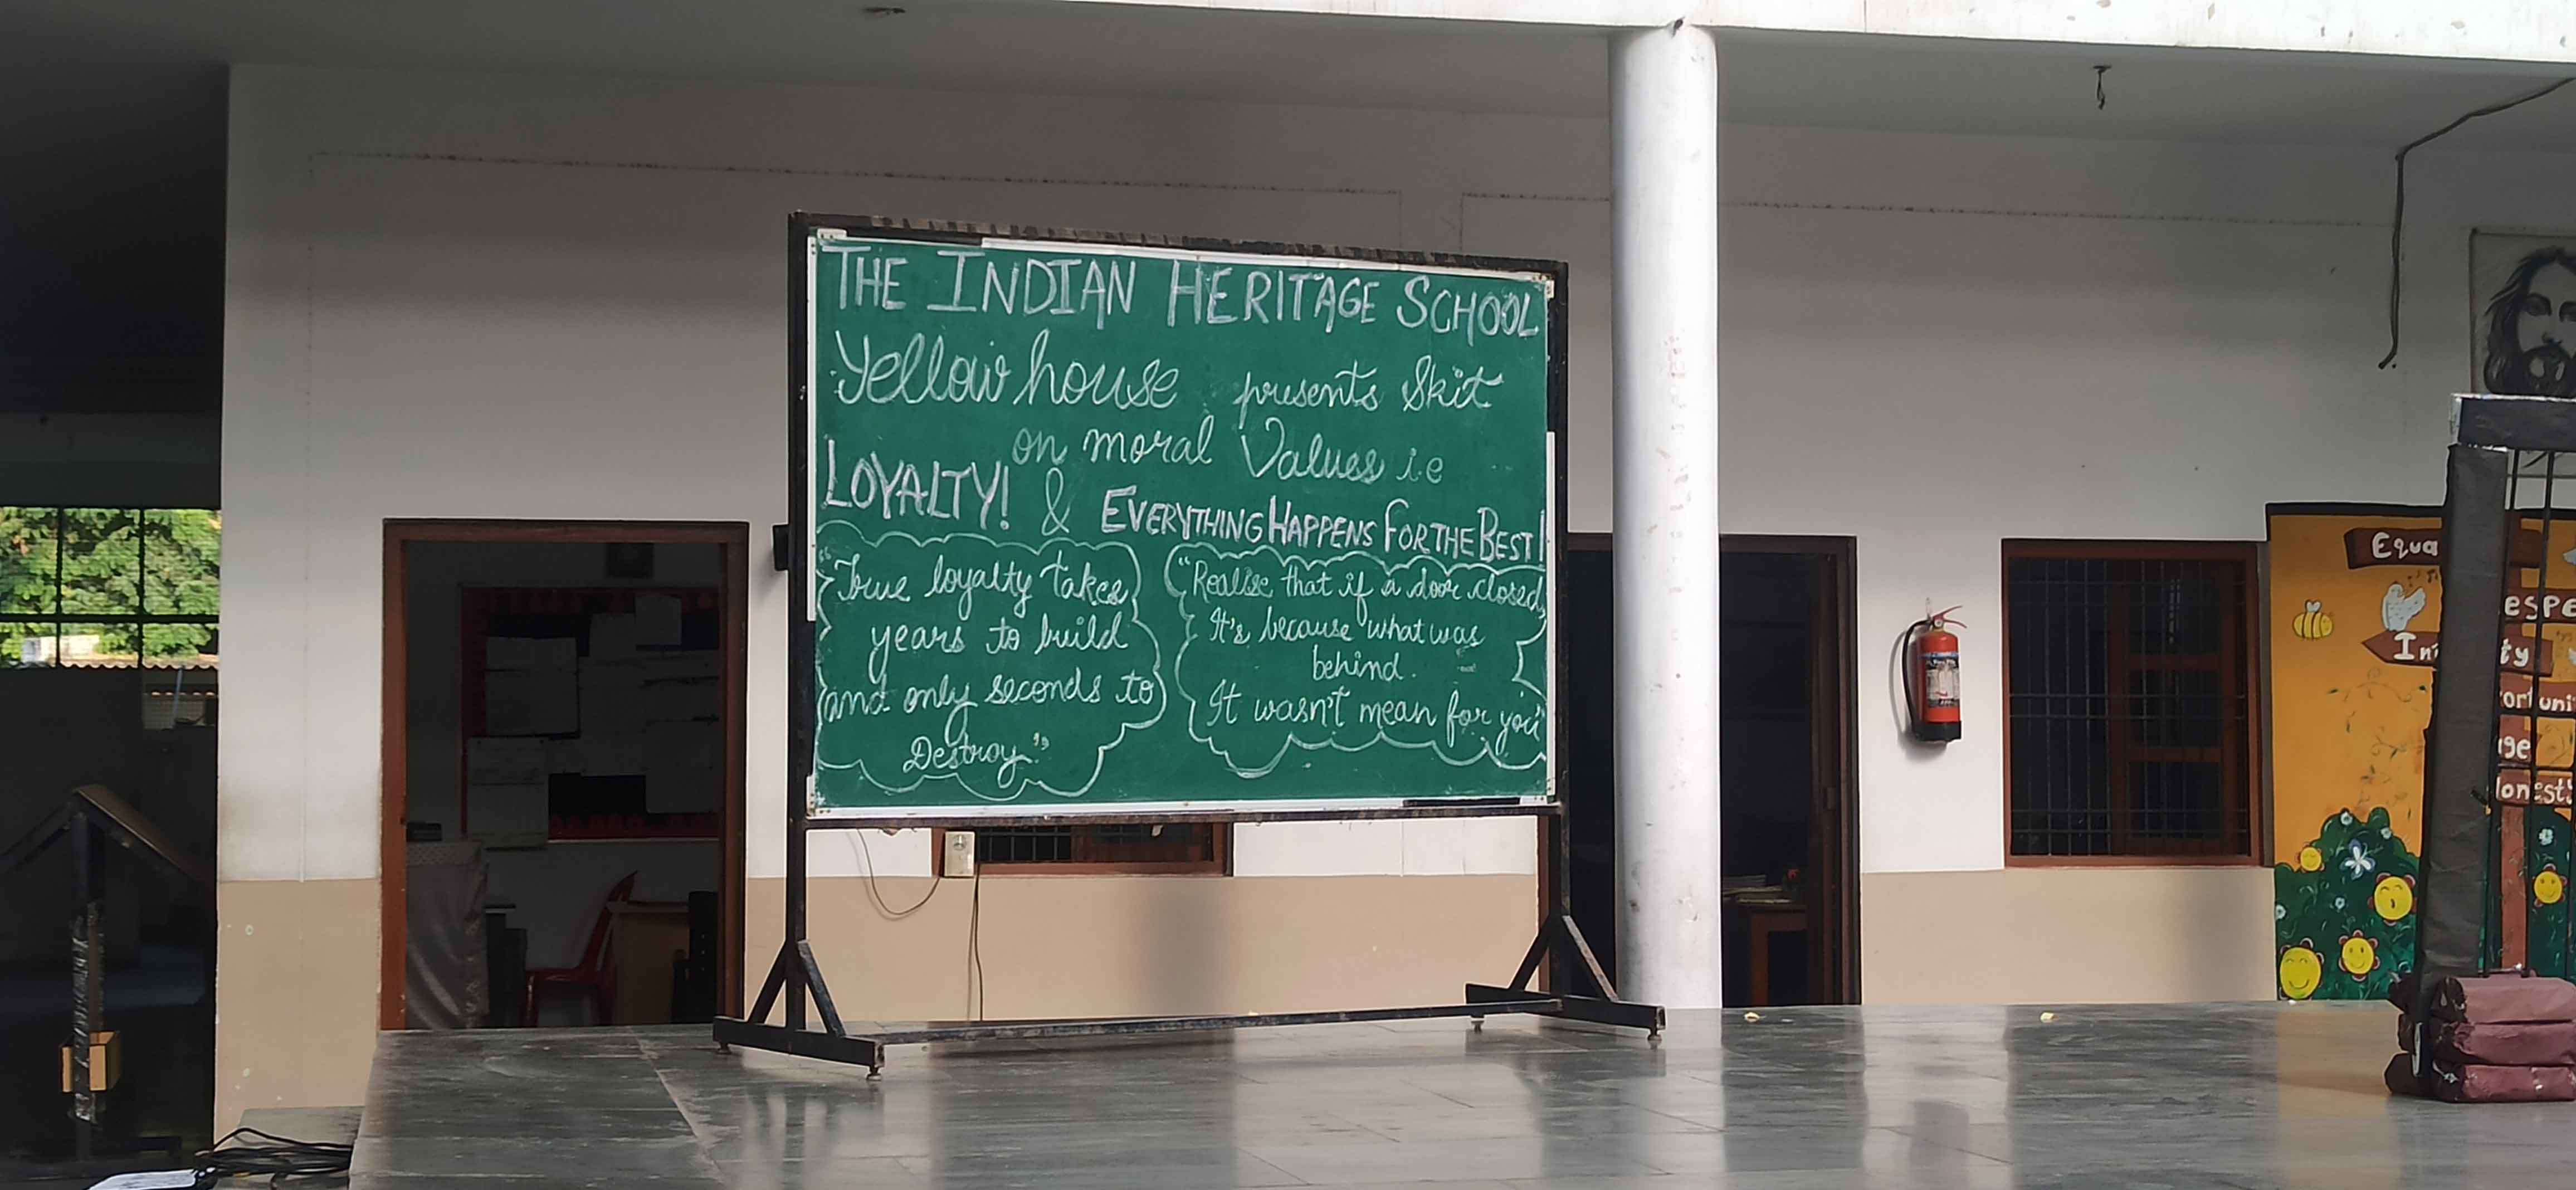 THE INDIAN HERITAGE SCHOOL
Yellow house presents Skit
on moral Values i.e
LOYALTY! & EVERYTHING HAPPENS FOR THE BEST!
"True loyalty takes
years to build
and only seconds to
Destroy."
"Realise that if a door closed,
It's because what was
behind.
It wasn't mean for you"
Equa
espe
In ty
ortuni
ge
onest